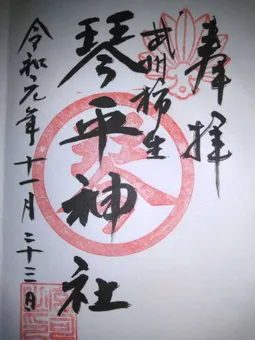 奉拝
武州柿生
琴平神社
令和元年十一月二十三日